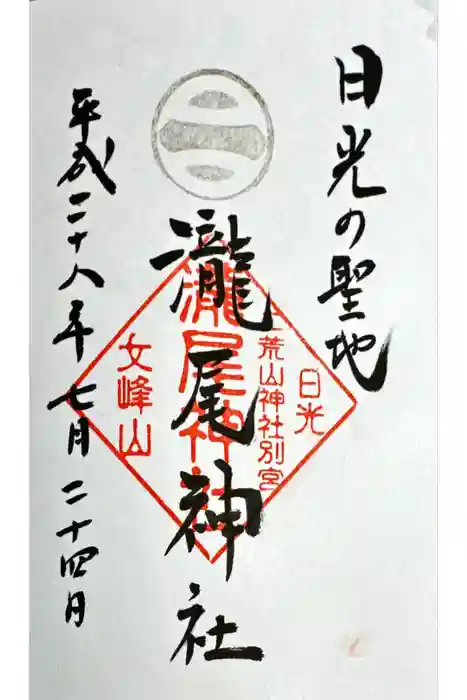 日光の聖地
瀧尾神社
平成二十八年七月二十四日
日光
二荒山神社別宮
瀧尾神社
女峰山